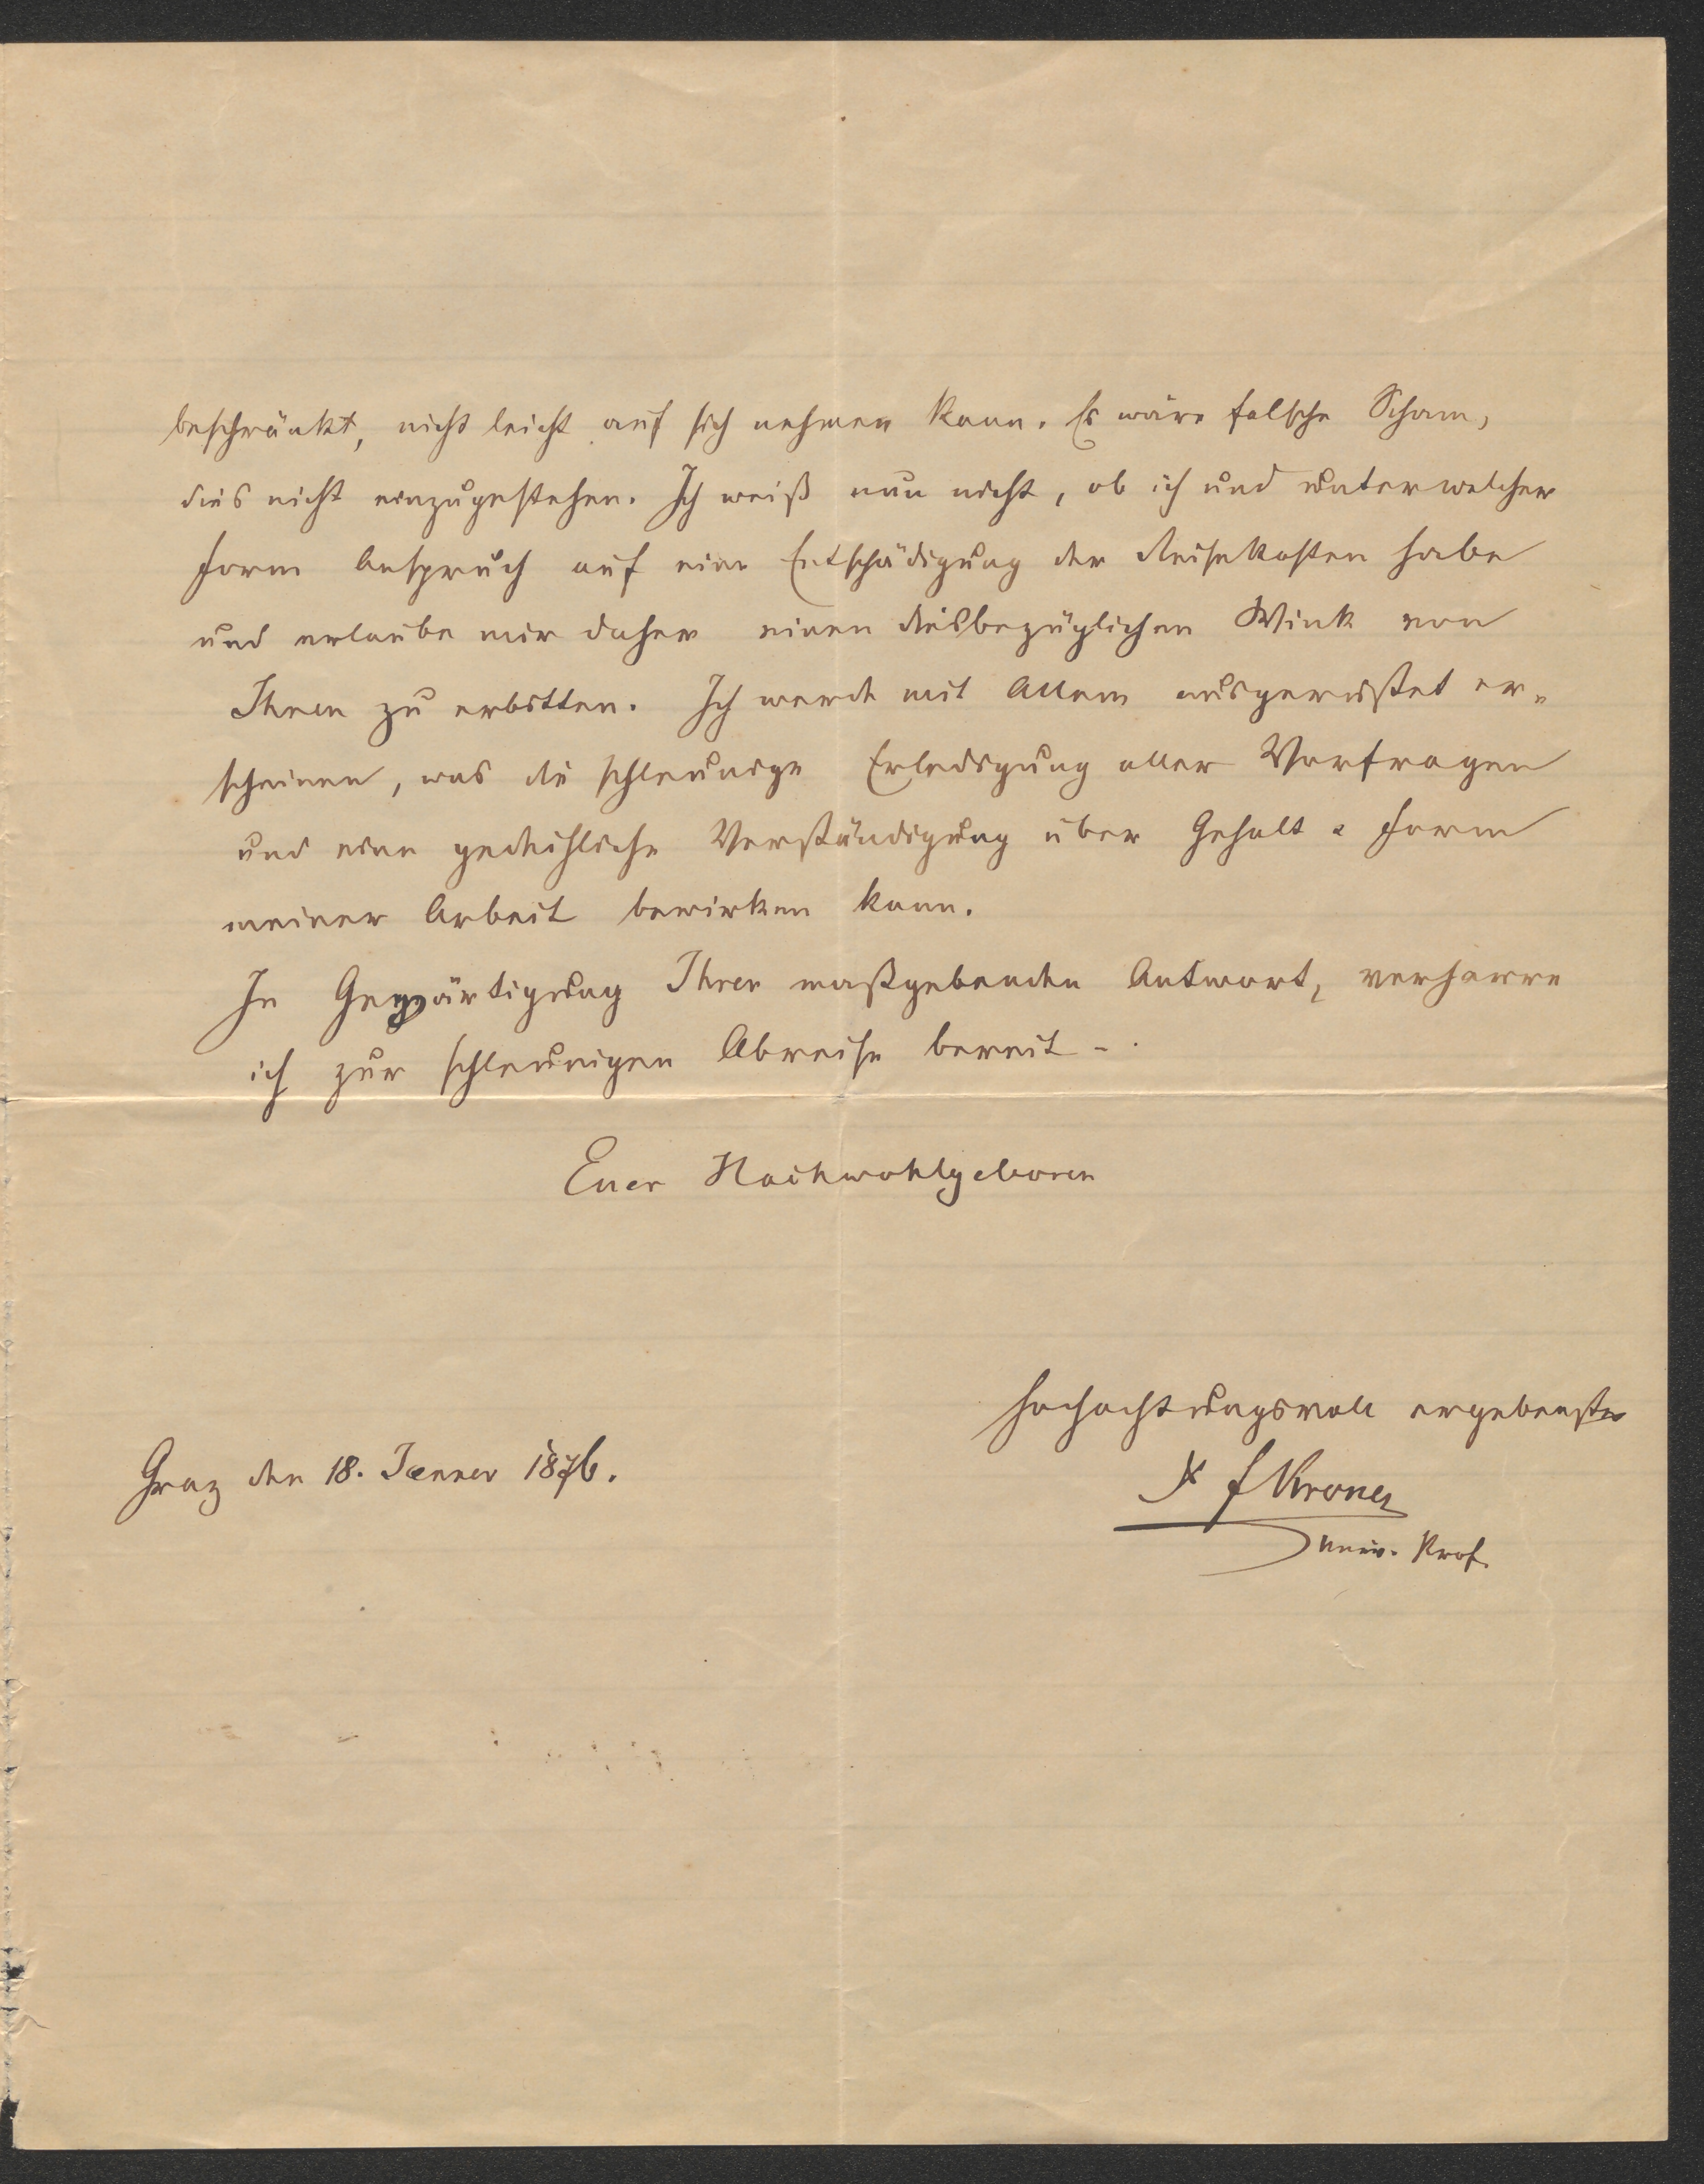 beschränkt, nicht leicht auf sich nehmen kann. Es wäre falsche Scham,
dies nicht einzugestehen. Ich weiß nun nicht, ob ich und unter welcher
Form Anspruch auf eine Entschädigung der Reisekosten habe
und erlaube mir daher einen diesbezüglichen Wink von
Ihnen zu erbitten. Ich werde mit Allem ausgerüstet er-
scheinen, was die schleunige Erledigung aller Vorfragen
und eine gedeihliche Verständigung über Gehalt & Form
meiner Arbeit bewirken kann.
In Gegwärtigung Ihrer maßgebenden Antwort, verharre
ich zur schleunigen Abreise bereit -.
Euer Hochwohlgeboren
hochachtungsvoll ergebenster
Graz den 18. Jænner 1876.
F Krones
Univ. Prof.